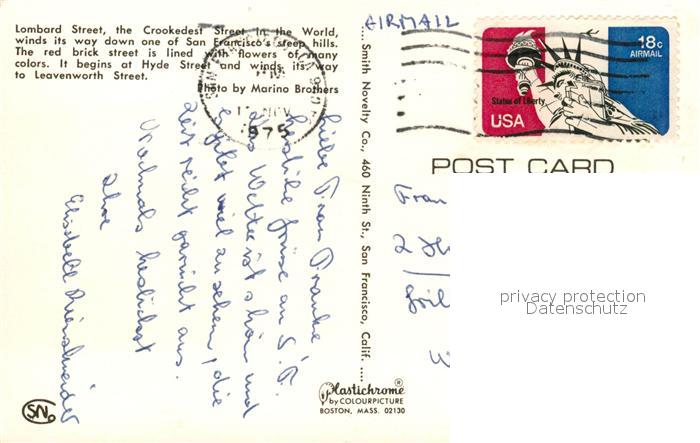 Lombard Street, the Crookedest Street in the World,
winds its way down one of San Francisco's steep hills.
The red brick street is lined with flowers of many
colors. It begins at Hyde Street and winds its way
to Leavenworth Street.
Photo by Marino Brothers
NOV
1975
AIRMAIL
18c
AIRMAIL
Statue of Liberty
USA
POST CARD
Smith Novelty Co., 460 Ninth St., San Francisco, Calif.
Liebe Frau Franke,
herzliche Grüsse aus S.F.
Das Wetter ist schön und
es gibt viel zu sehen, die
Zeit reicht gar nicht aus.
Nochmals herzlichst
Ihre
Elisabeth
Frau
2
privacy protection
Datenschutz
Plastichrome®
by COLOURPICTURE
BOSTON, MASS. 02130
SN